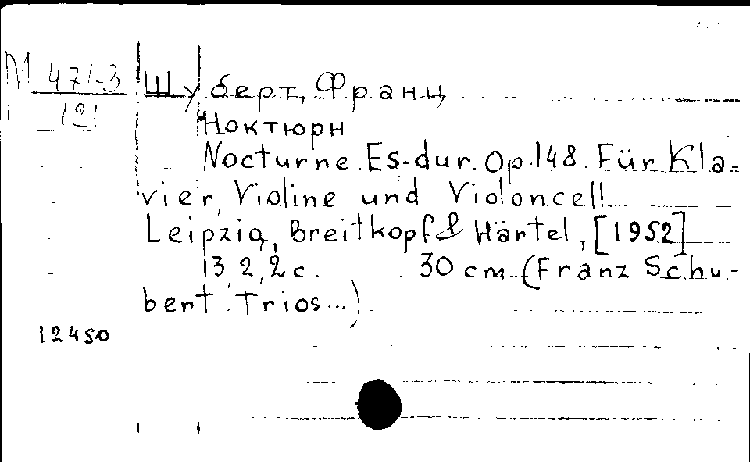 М 471-3 Шуберт, Франц
121
Ноктюрн
Nocturne. Es-dur. Op. 148. Für Kla-
vier, Violine und Violoncell
Leipzig, Breitkopf & Härtel, [1952]
13, 2, 2 c. 30 cm (Franz Schu-
bert. Trios...)
12450